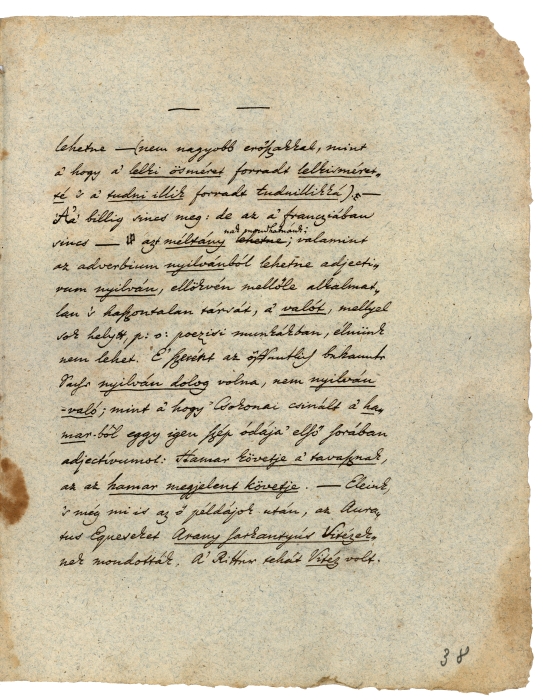 — —
lehetne — (nem nagyobb erőszakkal, mint
a' hogy a' lelki ösméret forradt lelkisméret-
té 's a' tudni illik forradt tudniillikké). —
A' billig sincs meg: de az a' francziában
sincs — azt méltány lehetne; valamint
az adverbium nyilvánból lehetne adjecti-
vum nyilván, ellökvén mellőle alkalmat-
lan 's haszontalan társát, a' valót, mellyel
sok helytt, p: o: poezisi munkákban, élnünk
nem lehet. E' szerént az öffentlich bekannte
Sache nyilván dolog volna, nem nyilván
-való; mint a' hogy Csokonai csinált a' ha-
mar-ból eggy igen szép ódája' első sorában
adjectívumot: Hamar követje a' tavasznak,
az az hamar megjelent követje. — Eleink,
's még mi is az ő példájok után, az Aura-
tus Equeseket Arany sarkantyús Vitézek-
nek mondották. A' Ritter tehát Vitéz volt.
38